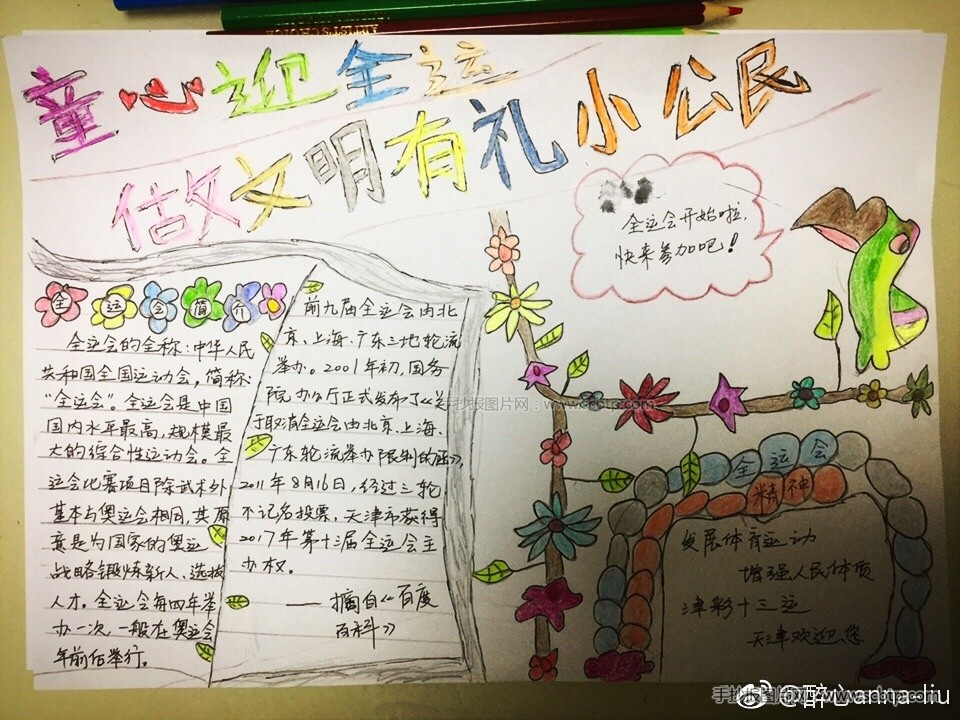 童心迎全运
做文明有礼小公民
全运会开始啦，
快来参加吧！
全运会简介
全运会的全称：中华人民
共和国全国运动会，简称：
“全运会”。全运会是中国
国内水平最高，规模最
大的综合性运动会。全
运会比赛项目除武术外
基本与奥运会相同，其原
意是为国家的奥运
战略锻炼新人、选拔
人才。全运会每四年举
办一次，一般在奥运会
年前后举行。
前九届全运会由北
京、上海、广东三地轮流
举办。2001年初，国务
院办公厅正式发布了《关
于取消全运会由北京、上海、
广东轮流举办限制的函》，
2011年8月16日，经过三轮
不记名投票，天津市获得
2017年第十三届全运会主
办权。
——摘自《百度
百科》
全运会
精神
发展体育运动
增强人民体质
津彩十三运
天津欢迎您
手抄报图片网：www.scbtp.com
手抄报图片网：www.scbtp.com
@醉心anna-liu